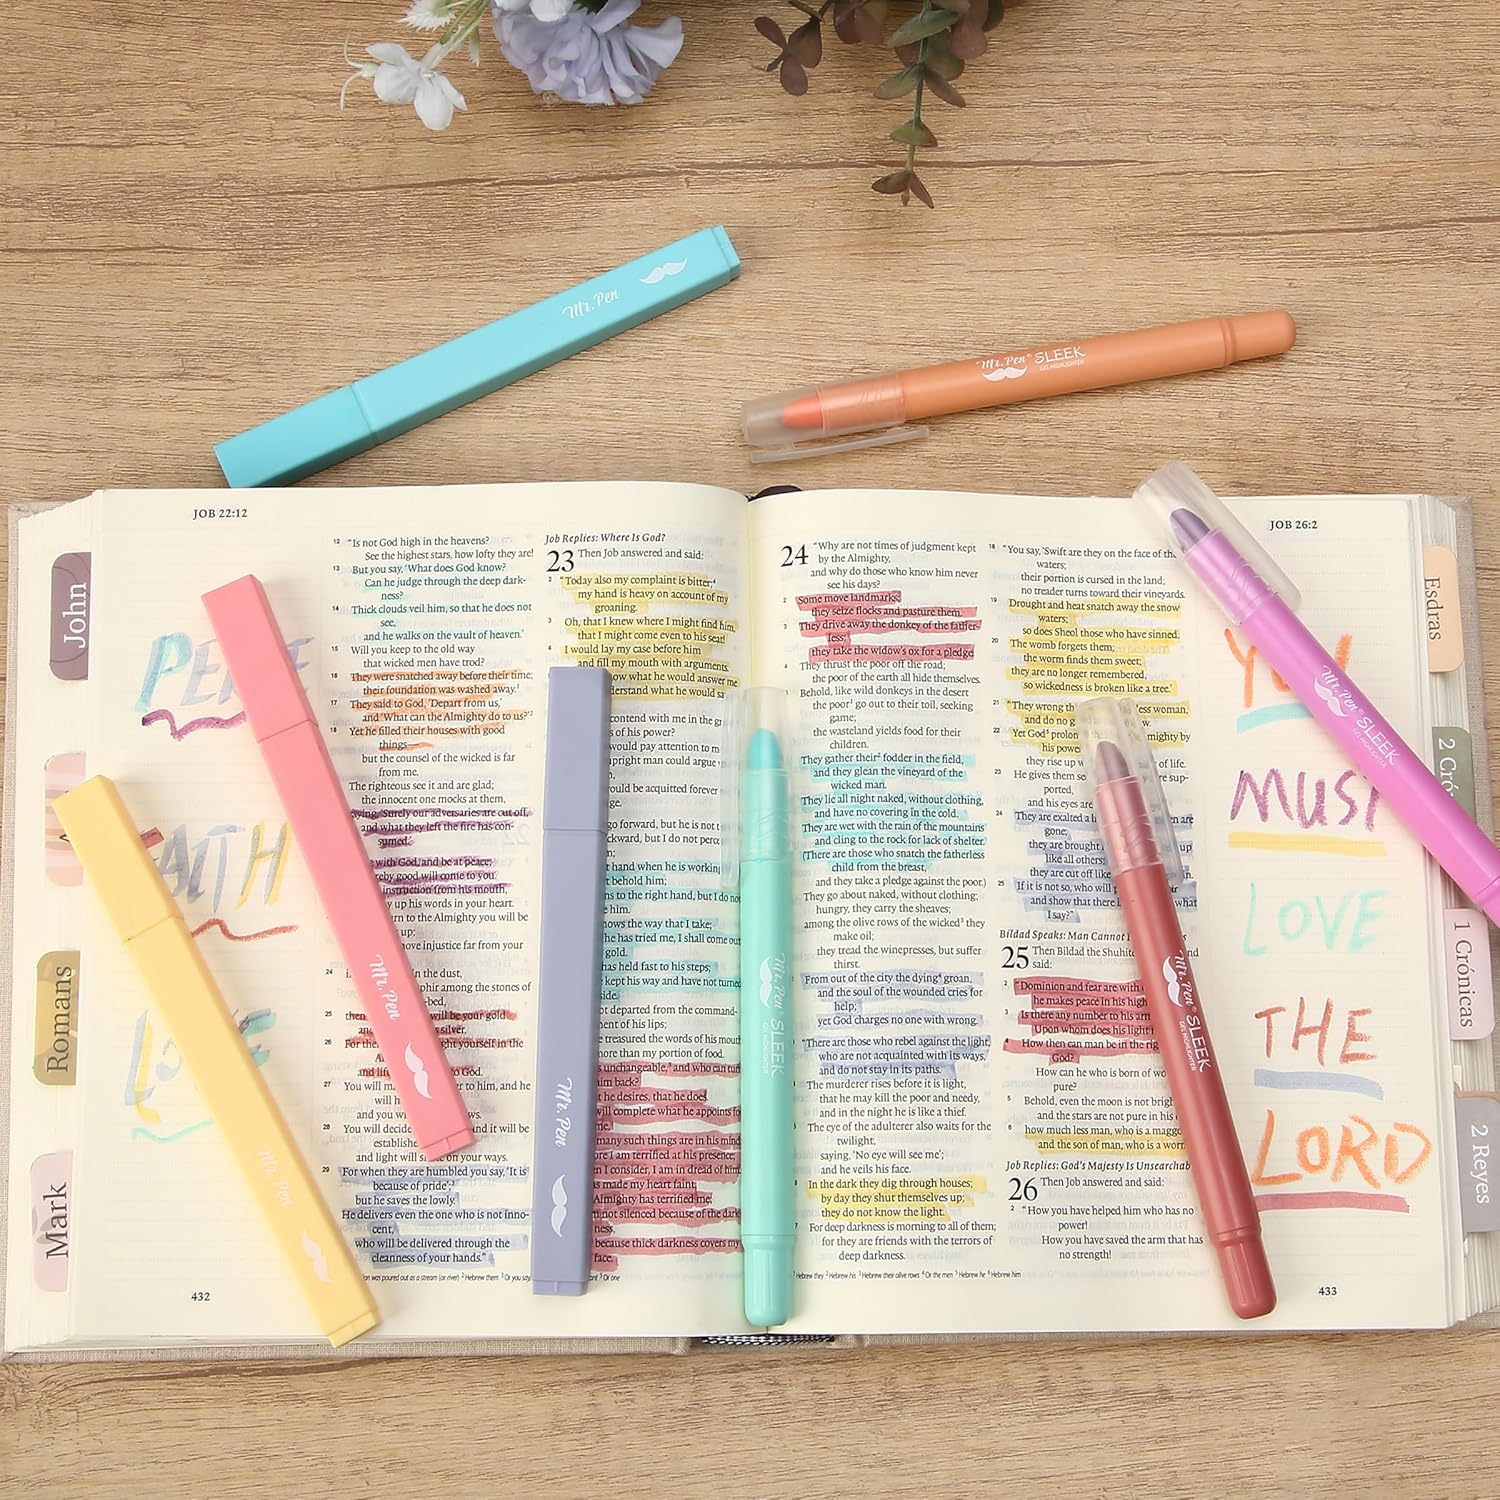 Mr. Pen
Mr. Pen
SLEEK
GEL HIGHLIGHTER
JOB 22:12
John
Romans
Mark
PE
AITH
12 "Is not God high in the heavens?
See the highest stars, how lofty they are!
13 But you say, 'What does God know?
Can he judge through the deep dark-
ness?
14 Thick clouds veil him, so that he does not
see,
and he walks on the vault of heaven.'
15 Will you keep to the old way
that wicked men have trod?
16 They were snatched away before their time;
their foundation was washed away.¹
17 They said to God, 'Depart from us,'
and 'What can the Almighty do to us?'²
18 Yet he filled their houses with good
things—
but the counsel of the wicked is far
from me.
The righteous see it and are glad;
the innocent one mocks at them,
saying, 'Surely our adversaries are cut off,
and what they left the fire has con-
sumed.'
with God, and be at peace;
good will come to you.
instruction from his mouth,
up his words in your heart.
to the Almighty you will be
up;
injustice far from your
24 in the dust,
among the stones of
-bed,
25 then will be your gold
silver.
26 For then yourself in the
and lift to God.
27 You will to him, and he
will
and you vows.
28 You will decide and it will be
established
and light will on your ways.
29 For when they are humbled you say, 'It is
because of pride';
but he saves the lowly.
30 He delivers even the one who is not inno-
cent,
who will be delivered through the
cleanness of your hands."
432
Job Replies: Where Is God?
23 Then Job answered and said:
2 "Today also my complaint is bitter;
my hand is heavy on account of my
groaning.
3 Oh, that I knew where I might find him,
that I might come even to his seat!
4 I would lay my case before him
and fill my mouth with arguments.
know what he would answer me
understand what he would say
contend with me in the
of his power?
would pay attention to
upright man could argue
be acquitted forever
go forward, but he is not
backward, but I do not
hand when he is working
behold him;
to the right hand, but I do not
him.
knows the way that I take;
he has tried me, I shall come out
gold.
has held fast to his steps;
kept his way and have not turned
aside.
not departed from the command-
ment of his lips;
treasured the words of his mouth
more than my portion of food.
unchangeable, and who can turn
him back?
he desires, that he does.
will complete what he appoints for
me,
many such things are in his mind
I am terrified at his presence;
I consider, I am in dread of him.
made my heart faint;
Almighty has terrified me;
not silenced because of the dark-
ness,
because thick darkness covers my
face.
24 "Why are not times of judgment kept
by the Almighty,
and why do those who know him never
see his days?
2 Some move landmarks;
they seize flocks and pasture them.
3 They drive away the donkey of the father-
less;
they take the widow's ox for a pledge
4 They thrust the poor off the road;
the poor of the earth all hide themselves.
Behold, like wild donkeys in the desert
the poor¹ go out to their toil, seeking
game;
the wasteland yields food for their
children.
They gather their² fodder in the field,
and they glean the vineyard of the
wicked man.
They lie all night naked, without clothing,
and have no covering in the cold.
They are wet with the rain of the mountains
and cling to the rock for lack of shelter.
(There are those who snatch the fatherless
child from the breast,
and they take a pledge against the poor.)
They go about naked, without clothing;
hungry, they carry the sheaves;
among the olive rows of the wicked³ they
make oil;
they tread the winepresses, but suffer
thirst.
From out of the city the dying⁴ groan,
and the soul of the wounded cries for
help;
yet God charges no one with wrong.
"There are those who rebel against the light,
who are not acquainted with its ways,
and do not stay in its paths.
The murderer rises before it is light,
that he may kill the poor and needy,
and in the night he is like a thief.
The eye of the adulterer also waits for the
twilight,
saying, 'No eye will see me';
and he veils his face.
In the dark they dig through houses;
by day they shut themselves up;
they do not know the light.
For deep darkness is morning to all of them;
for they are friends with the terrors of
deep darkness.
18 "You say, 'Swift are they on the face of the
waters;
their portion is cursed in the land;
no treader turns toward their vineyards.
19 Drought and heat snatch away the snow
waters;
so does Sheol those who have sinned.
20 The womb forgets them;
the worm finds them sweet;
they are no longer remembered,
so wickedness is broken like a tree.'
21 "They wrong the woman,
and do no
22 Yet God prolongs mighty by
his power
they rise up of life.
23 He gives them sup-
ported,
and his eyes are
24 They are exalted a
gone;
they are brought
like all others;
they are cut off like
25 If it is not so, who will
and show that there is
I say?"
Bildad Speaks: Man Cannot
25 Then Bildad the Shuhite
said:
2 "Dominion and fear are with
he makes peace in his high
3 Is there any number to his
Upon whom does his light
4 How then can man be in the
God?
How can he who is born of
pure?
5 Behold, even the moon is not
and the stars are not pure in his
6 how much less man, who is a
and the son of man, who is a
Job Replies: God's Majesty Is Unsearchab
26 Then Job answered and said:
2 "How you have helped him who has no
power!
How you have saved the arm that has
no strength!
¹ Hebrew they ² Hebrew his ³ Hebrew their olive rows ⁴ Or the men ⁵ Hebrew he ⁶ Hebrew him
433
JOB 26:2
YOU
MUST
LOVE
THE
LORD
Esdras
2 Cró
1 Crónicas
2 Reyes
Mr. Pen
Mr. Pen
Mr. Pen
Mr. Pen
SLEEK
GEL HIGHLIGHTER
Mr. Pen
SLEEK
GEL HIGHLIGHTER
Mr. Pen
SLEEK
GEL HIGHLIGHTER